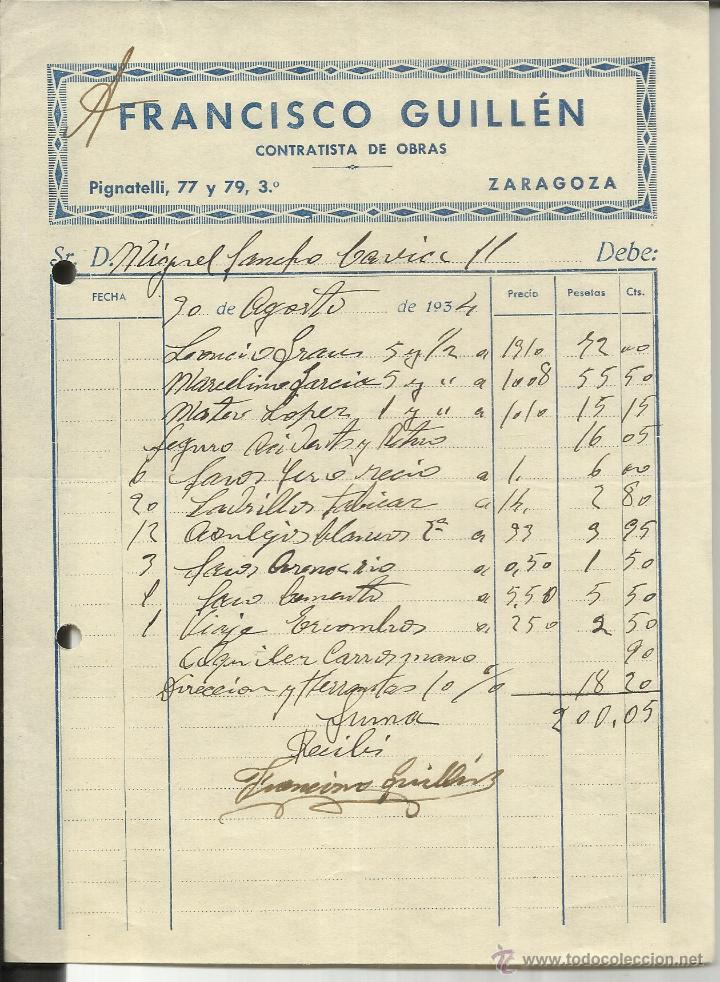 FRANCISCO GUILLÉN
CONTRATISTA DE OBRAS
Pignatelli, 77 y 79, 3.º ZARAGOZA
Sr. D. Miguel Sancho Cavia 11 Debe:
FECHA 20 de Agosto de 1934 Precio Pesetas Cts.
Leoncio Graus 5 y 1/2 a 1310 72 00
Marcelino Garcia 5 y " a 1008 55 50
Mateo Lopez 1 y " a 1010 15 15
Seguro Acidents y Retiro 16 05
6 Sacos Yeso recio a 1. 6 00
20 Ladrillos tabicar a 14. 2 80
12 Azulejos blancos a 33 3 95
3 Sacos a 0,50 1 50
1 Saco Cemento a 5,50 5 50
1 Viaje Escombros a 250 2 50
Alquiler Carrosmano 90
Direccion y Herrantas 10 % 18 20
Suma 200,05
Recibi
Francisco Guillén
www.todocoleccion.net